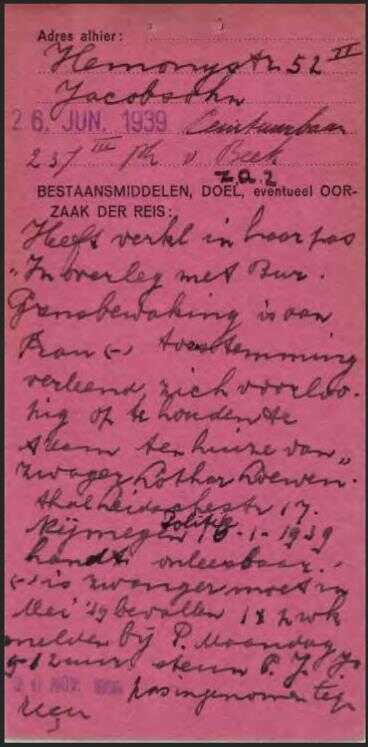 Adres alhier:
Hemonystr 52 II
Jacobsohn
26. JUN. 1939 Ceintuurbaan
237 III v. Beek
z.o.z
BESTAANSMIDDELEN, DOEL, eventueel OOR-
ZAAK DER REIS:
Heeft verkl in haar pas
"In overleg met Bur.
Grensbewaking is aan
Frau (-) toestemming
verleend zich voorloo-
pig op te houden te
A'dam ten huize van"
zwager Lothar Loewen-
thal 17.
Nijmegen 16-1-1939
Politie
handt. onleesbaar.
(-) is zwanger moet in
Mei '39 bevallen 1 x p wk
melden bij P. Maandag
9-12 uur steun P. J. J.
NOV.
pas ingenomen tegen